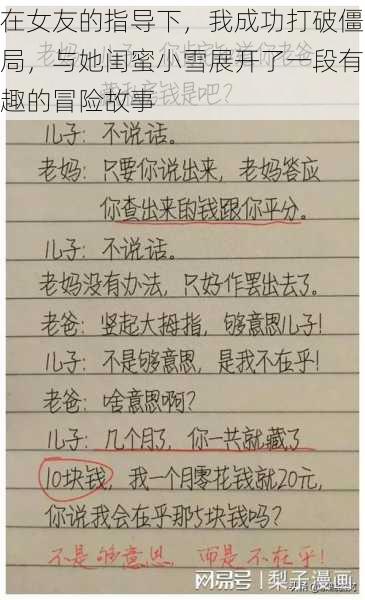 在女友的指导下，我成功打破僵
局，与她闺蜜小雪展开了一段有
趣的冒险故事
儿子：不说话。
老妈：只要你说出来，老妈答应
你查出来的钱跟你平分。
儿子：不说话。
老妈没有办法，只好作罢出去了。
老爸：竖起大拇指，够意思儿子！
儿子：不是够意思，是我不在乎！
老爸：啥意思啊？
儿子：几个月了，你一共就藏了
10块钱，我一个月零花钱就20元，
你说我会在乎那5块钱吗？
不是够意思，而是不在乎！
搜狐号|梨子漫画